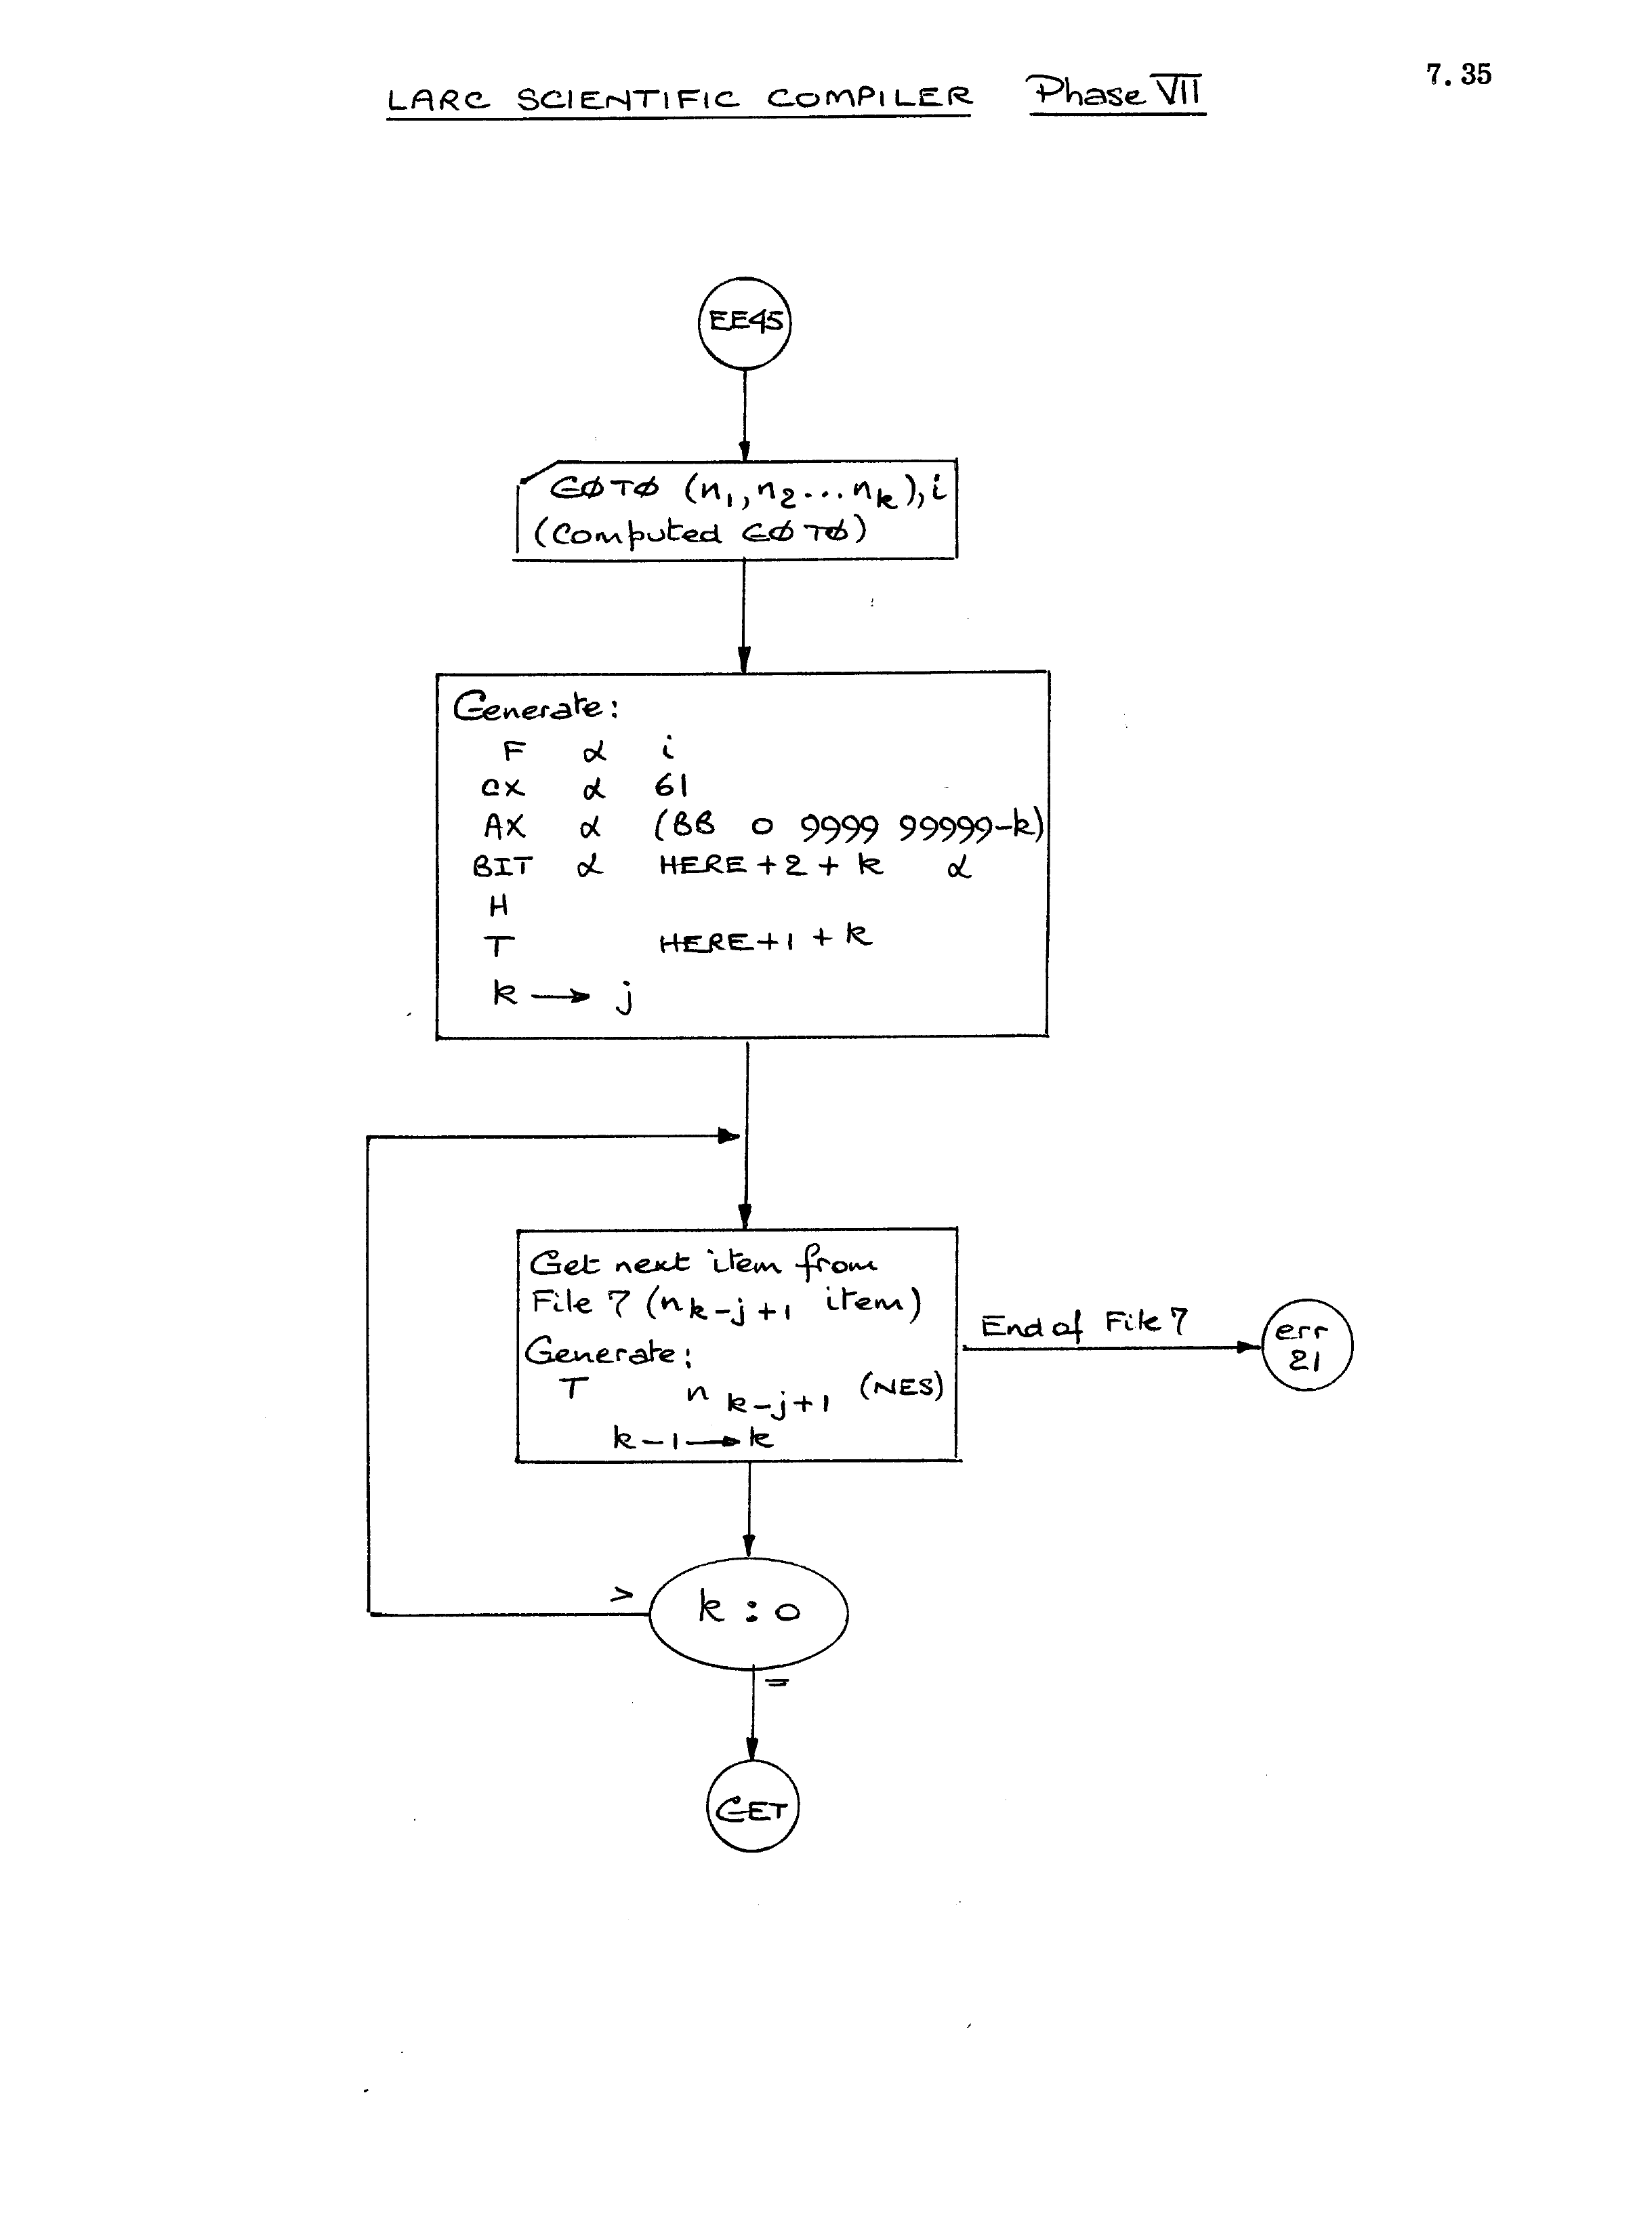 LARC SCIENTIFIC COMPILER Phase VII
7.35
EE45
GØTØ (n1, n2...nk), i
(Computed GØTØ)
Generate:
F α i
CX α 61
AX α (BB 0 9999 99999-k)
BIT α HERE + 2 + k α
H
T HERE + 1 + k
k → j
Get next item from
File 7 (n k-j+1 item)
Generate:
T n k-j+1 (NES)
k-1 → k
End of File 7
err
21
>
k : 0
=
GET